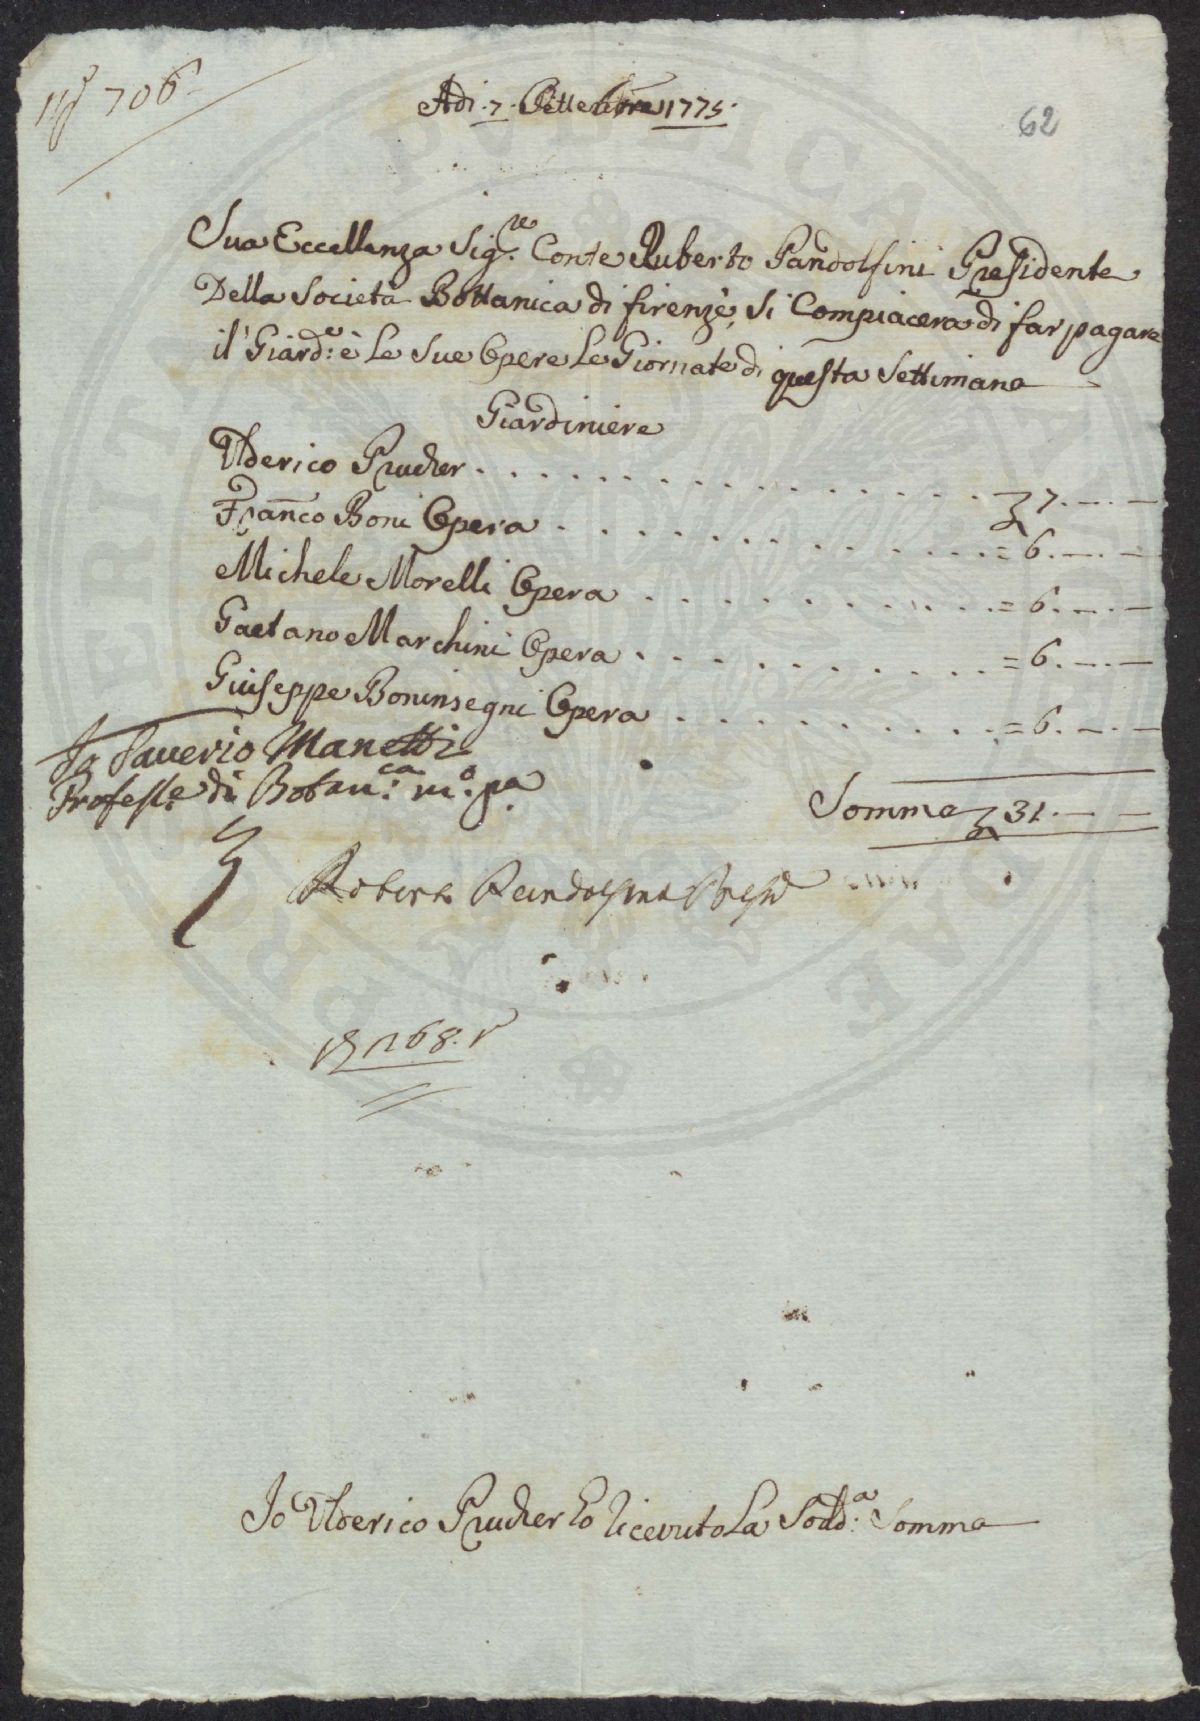 N.º 706
Adi. 7. Settembre 1775.
62
Sua Eccellenza Sig.re Conte Ruberto Pandolfini Presidente
Della Società Bottanica di firenze, Si Compiacera di far pagare
il Giard.e è Le Sue Opere Le Giornate di questa Settimana
Giardiniere
Ulderico Prucher . . . . . . . . . . . . . . . 7. — . —
Fran.co Boni Opera . . . . . . . . . . . . = 6. — . —
Michele Morelli Opera . . . . . . . . . . = 6. — . —
Gaetano Marchini Opera . . . . . . . . . . = 6. — . —
Giuseppe Boninsegni Opera . . . . . . . . . = 6. — . —
Io Saverio Manetti
Profess.e di Botan.ca m.o p.a
Somma 31. — —
Roberto Pandolfini Presid
268.
Io Ulderico Prucher ho ricevuto La Sodd.a Somma